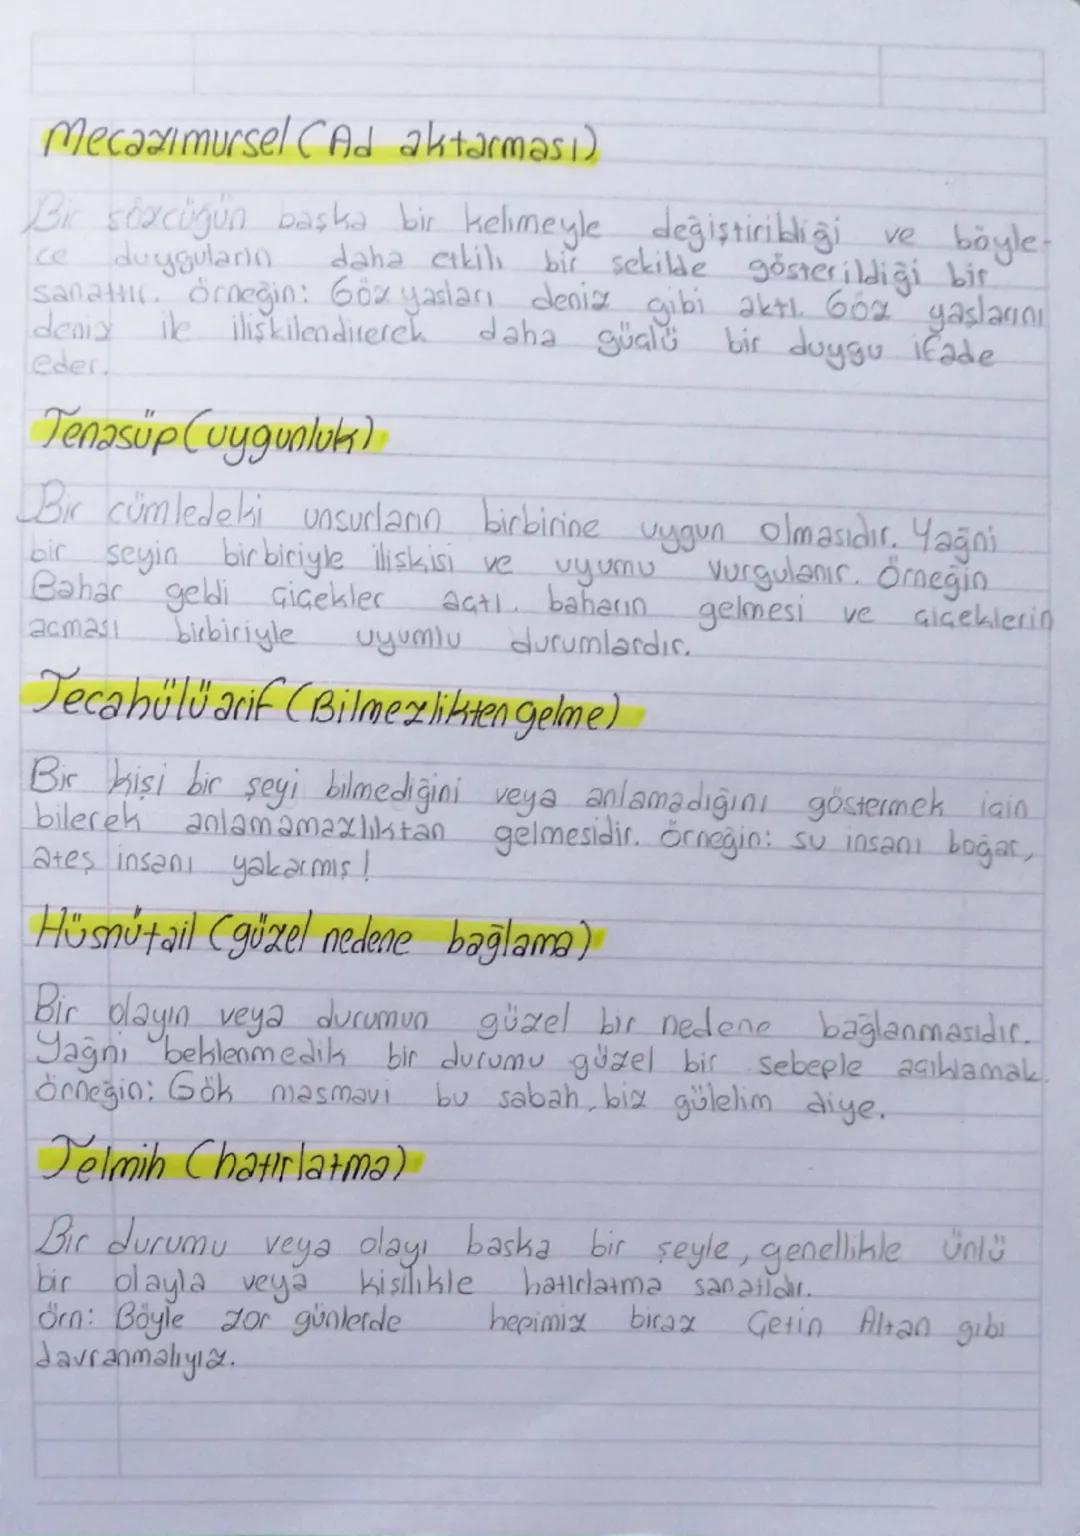 Mecazımursel (Ad aktarması)
Bir sözcüğün başka bir kelimeyle değiştiribliği ve böyle-
ce duyguların daha etkili bir sekilde gösterildiği bir
sanattır. örneğin: Göz yasları deniz gibi aktı. Göz yaşlarını
deniz ile ilişkilendirerek daha güçlü bir duygu ifade
eder.
Tenasüp (uygunluk)
Bir cümledeki unsurların birbirine uygun olmasıdır. Yağni
bir seyin birbiriyle iliskisi ve uyumu vurgulanır. Örneğin
Bahar geldi çiçekler açtı. baharın gelmesi ve çiçeklerin
acması birbiriyle uyumlu durumlardır.
Tecahülüarif (Bilmezlikten gelme)
Bir kişi bir şeyi bilmediğini veya anlamadığını göstermek için
bilerek anlamamazlıktan gelmesidir. örneğin: su insanı boğar,
ateş insanı yakarmış!
Hüsnütail (güzel nedene bağlama)
Bir olayın veya durumun güzel bir nedene bağlanmasıdır.
Yağni beklenmedik bir durumu güzel bir sebeple açıklamak.
örneğin: Gök masmavi bu sabah, biz gülelim diye.
Telmih (hatırlatma)
Bir durumu veya olayı baska bir şeyle, genellikle ünlü
bir olayla veya kisilikle hatırlatma sanatıdır.
örn: Böyle zor günlerde hepimiz biraz Çetin Altan gibi
davranmalıyız.